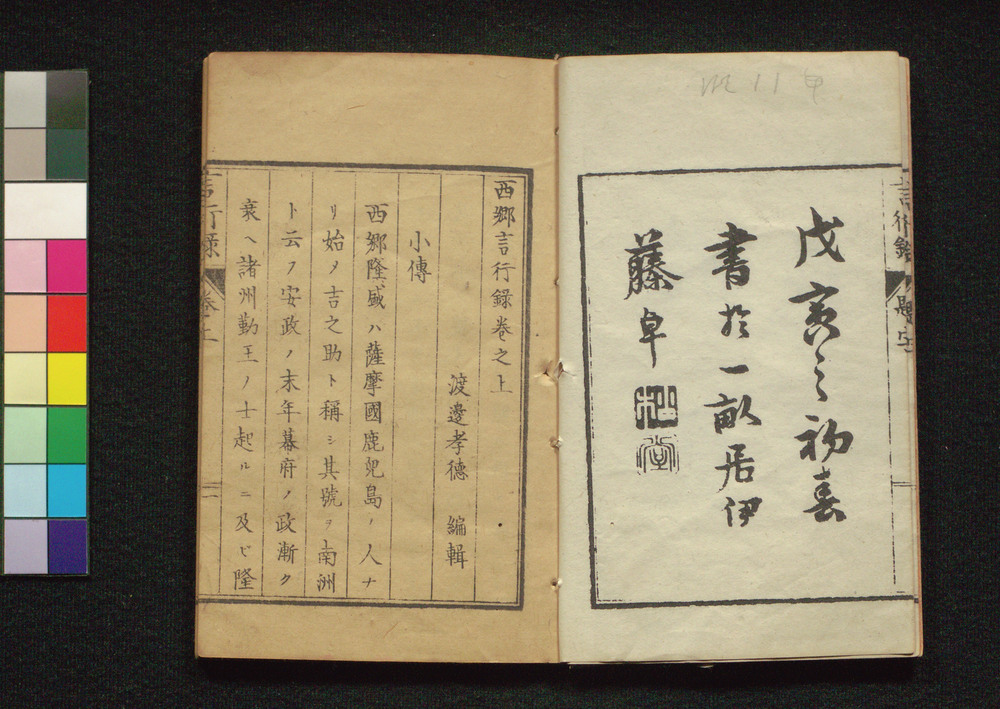 戊亥之初春
書於一畝居伊
藤卓
西郷言行録卷之上
渡邊孝德 編輯
小傳
西郷隆盛ハ薩摩國鹿兒島ノ人ナ
リ始メ吉之助ト稱シ其號ヲ南洲
ト云フ安政ノ末年幕府ノ政漸ク
衰ヘ諸州勤王ノ士起ルニ及ビ隆
言行録
卷上